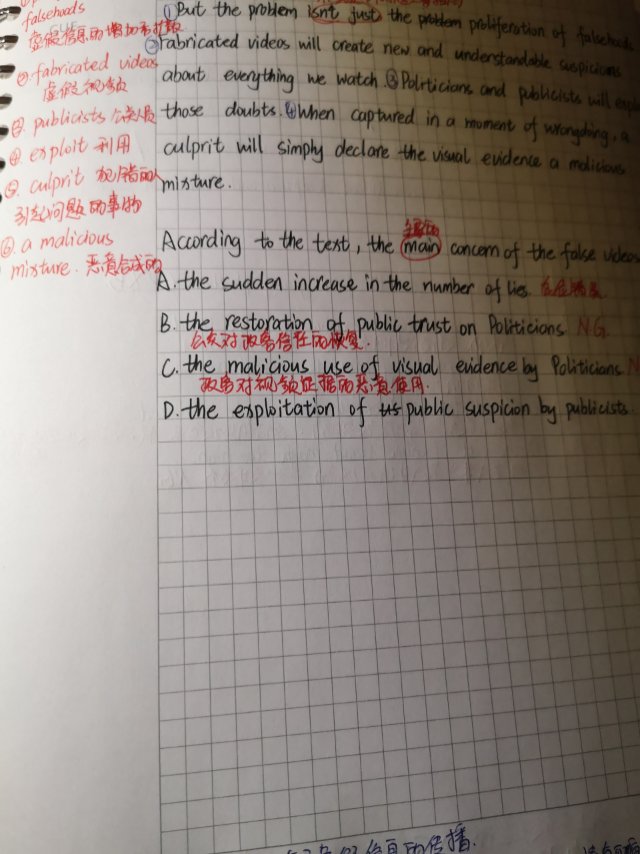 falsehoods
虚假信息的增加和扩散
②.fabricated videos
虚假视频
③. publicists 公关人员
④ exploit 利用
⑤. culprit 犯错的人
引起问题的事物
⑥. a malicious
mixture. 恶意合成的
①But the problem isn't just the problem proliferation of falsehoods
②Fabricated videos will create new and understandable suspicions
about everything we watch.③Politicians and publicists will
those doubts.④When captured in a moment of wrongdoing, a
culprit will simply declare the visual evidence a malicious
mixture.
主要的
According to the text, the main concern of the false videos
A.the sudden increase in the number of lies.
B. the restoration of public trust on Politicians. NG.
公众对政客信任的恢复.
C. the malicious use of visual evidence by Politicians. N
政客对视频证据的恶意使用.
D. the exploitation of us public suspicion by publicists.
信息的传播.